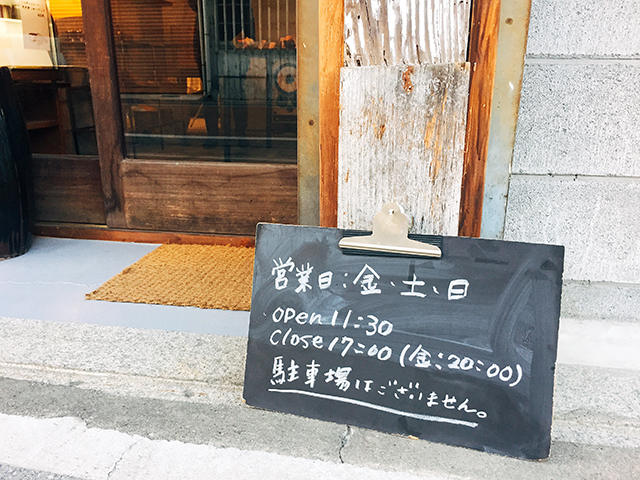 営業日:金、土、日
OPEN 11:30
Close 17:00 (金:20:00)
駐車場はございません。